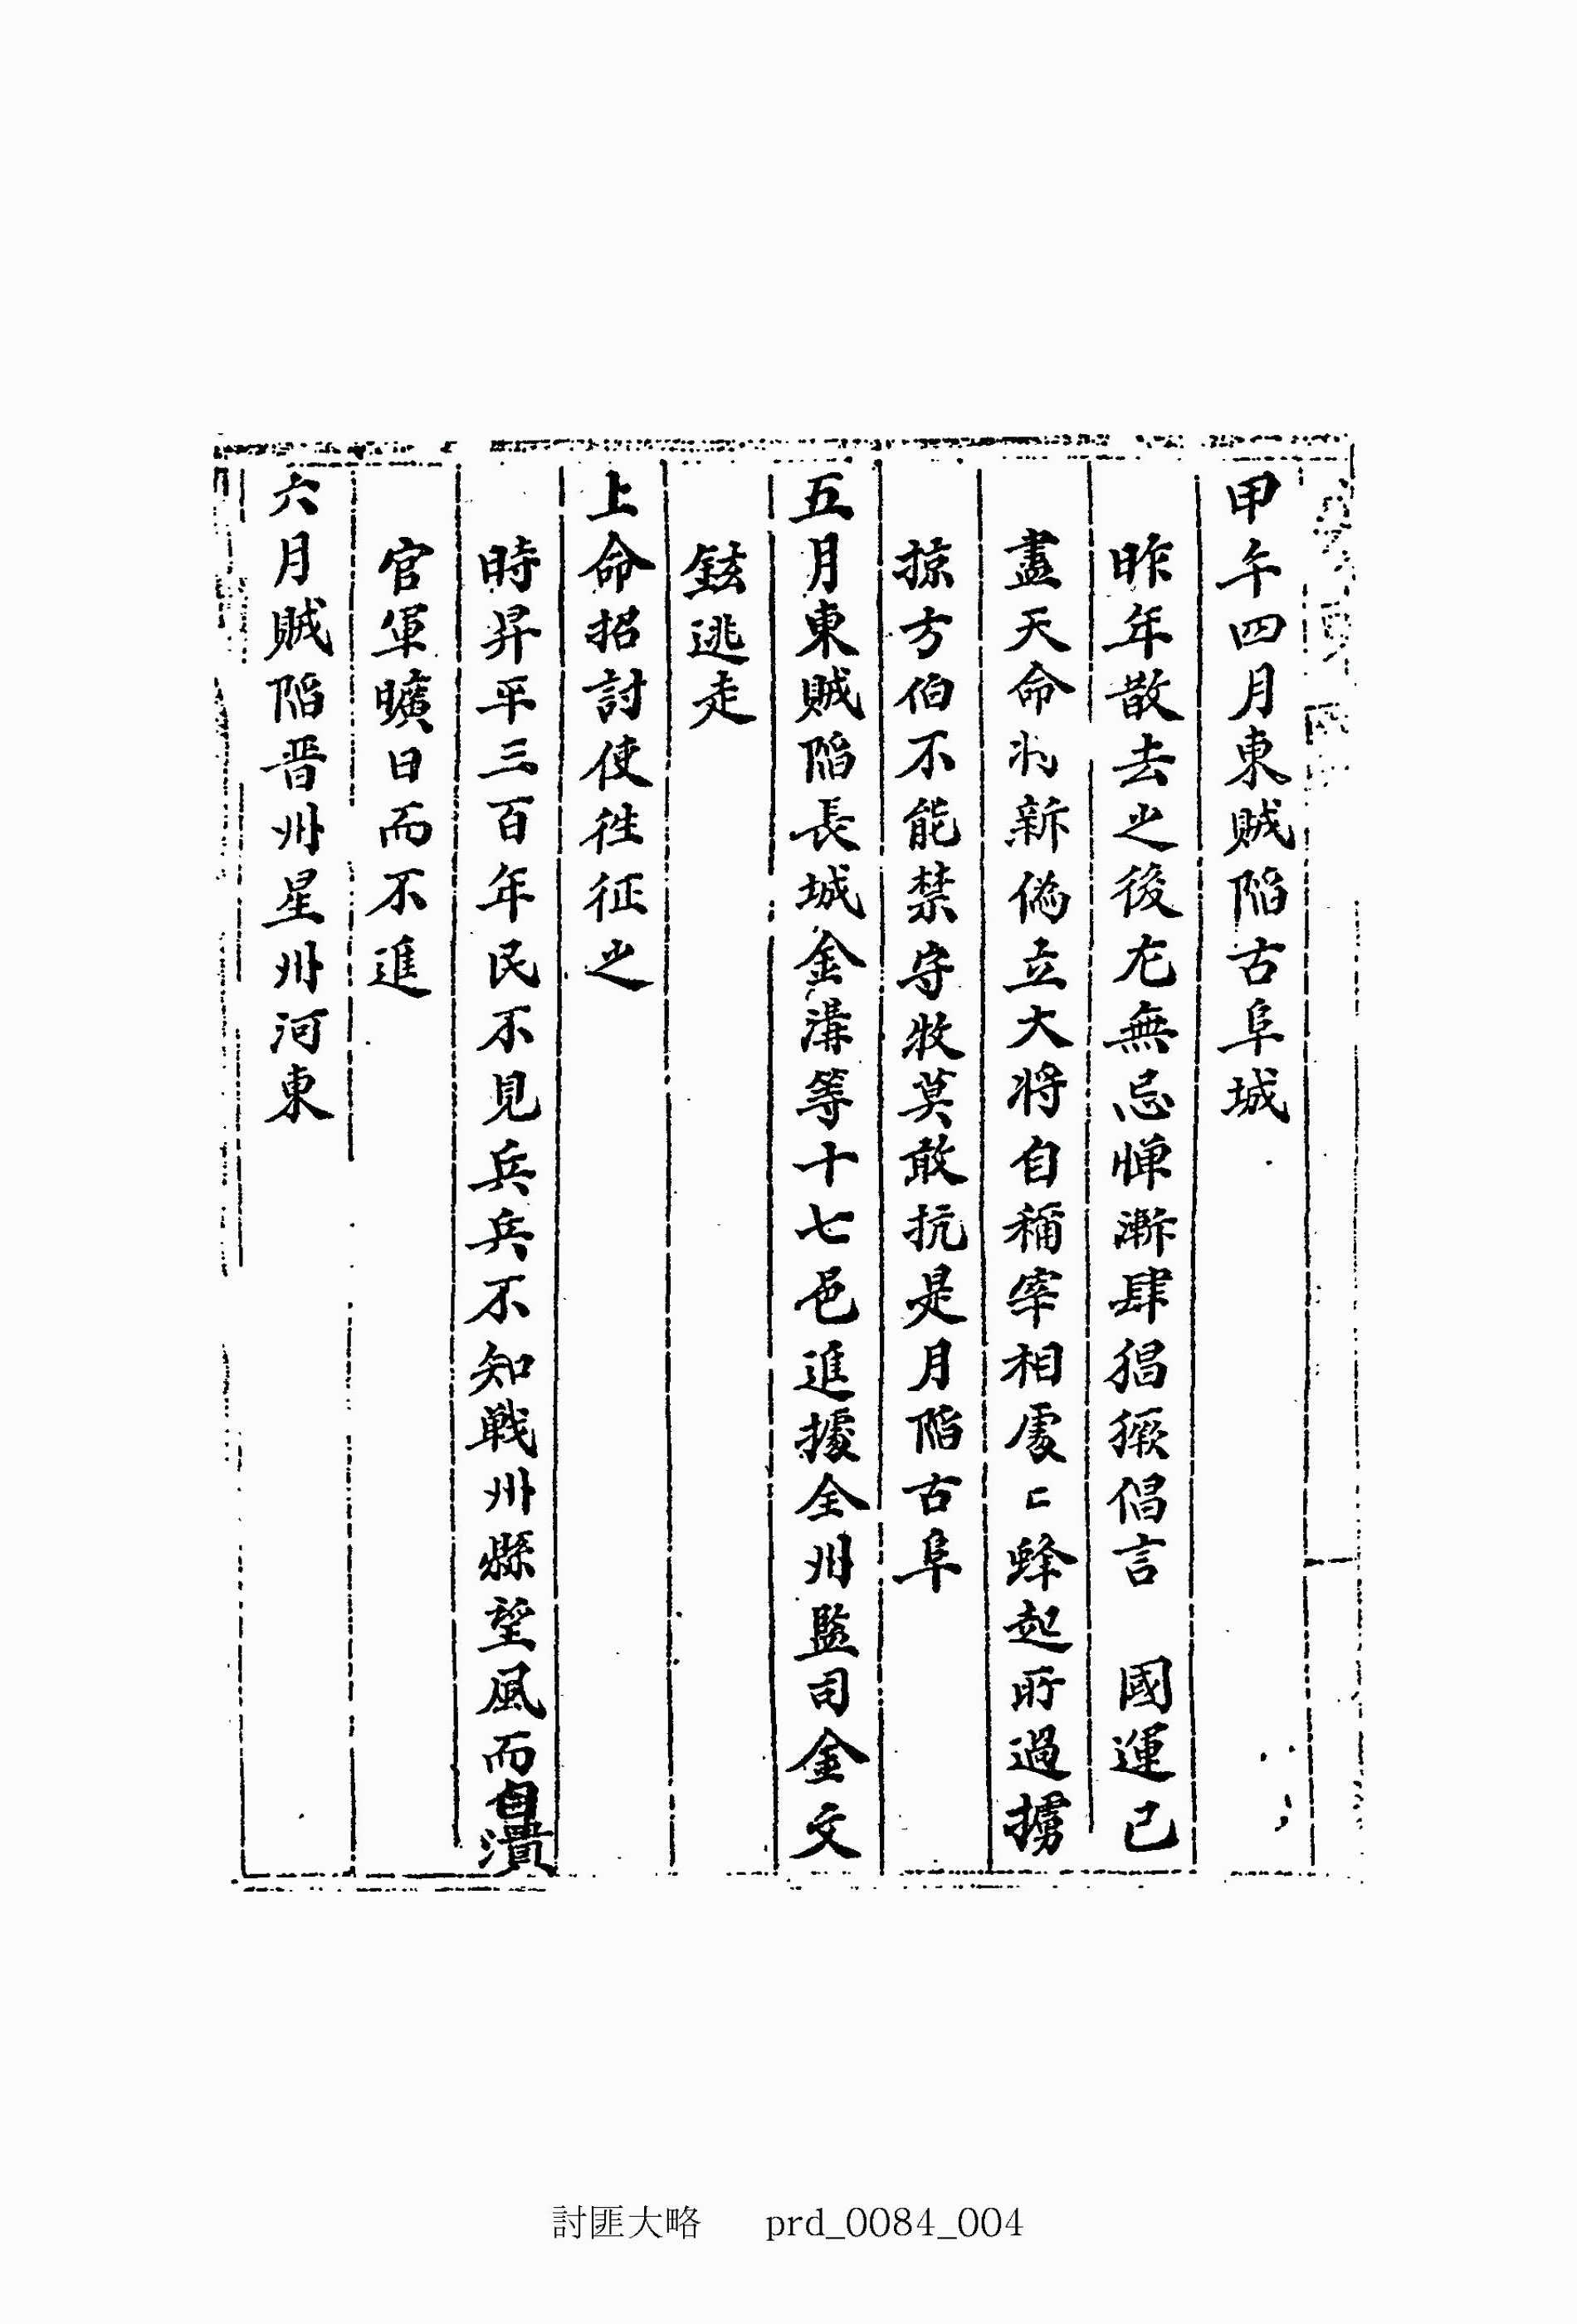 甲午四月東賊陷古阜城
昨年散去之後尤無忌憚漸肆猖獗倡言　國運已
盡天命將新僞立大將自稱宰相處〻蜂起所過擄
掠方伯不能禁守牧莫敢抗是月陷古阜
五月東賊陷長城金溝等十七邑進據全州監司金文
鉉逃走
上命招討使徃征之
時昇平三百年民不見兵兵不知戰州縣望風而自潰
官軍曠日而不進
六月賊陷晋州星州河東
討匪大略 prd_0084_004